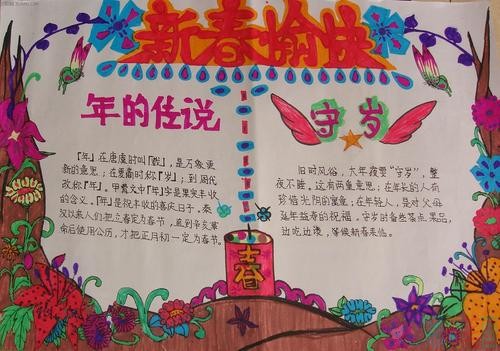 新春愉快
年的传说
「年」在唐虞时叫「载」,是万象更
新的意思;在夏商时称「岁」;到周代
改称「年」。甲骨文中「年」字是果实丰收
的含义。「年」是丰收的喜庆日子。秦
汉以来人们把立春定为春节,直到辛亥革
命后使用公历,才把正月初一定为春节。
守岁
旧时风俗,大年夜要"守岁",整
夜不睡。这有两重意思:在年长的人有
珍惜光阴的寓意;在年轻人,是对父母
延年益寿的祝福。守岁时备些茶点果品,
边吃边谈,等候新春来临。
春